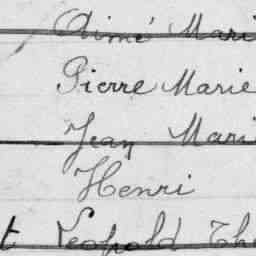 Aimé Mari
Pierre Marie
Jean Mari
Henri
t Léopold Th